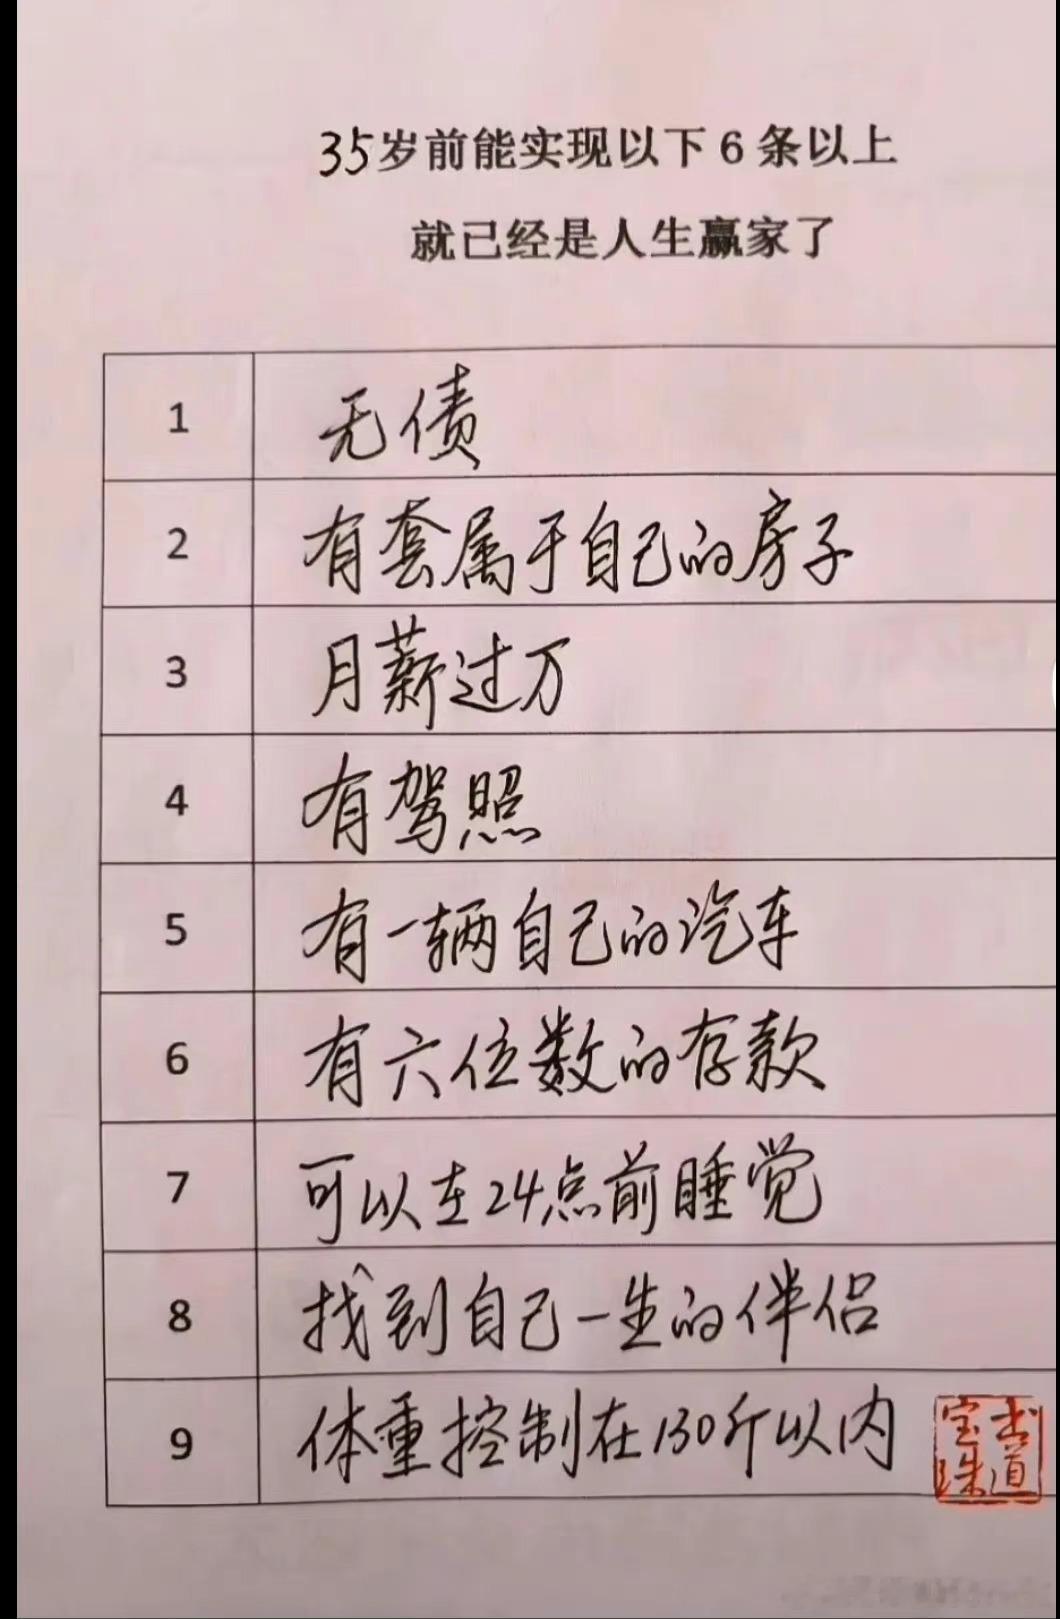 35岁前能实现以下6条以上
就已经是人生赢家了
1 无债
2 有套属于自己的房子
3 月薪过万
4 有驾照
5 有一辆自己的汽车
6 有六位数的存款
7 可以在24点前睡觉
8 找到自己一生的伴侣
9 体重控制在130斤以内
书道
宝珠